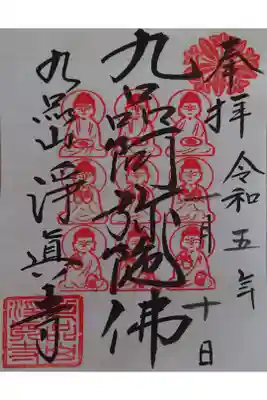 奉拝
令和五年
一月十日
九品阿弥陀佛
九品山
淨眞寺